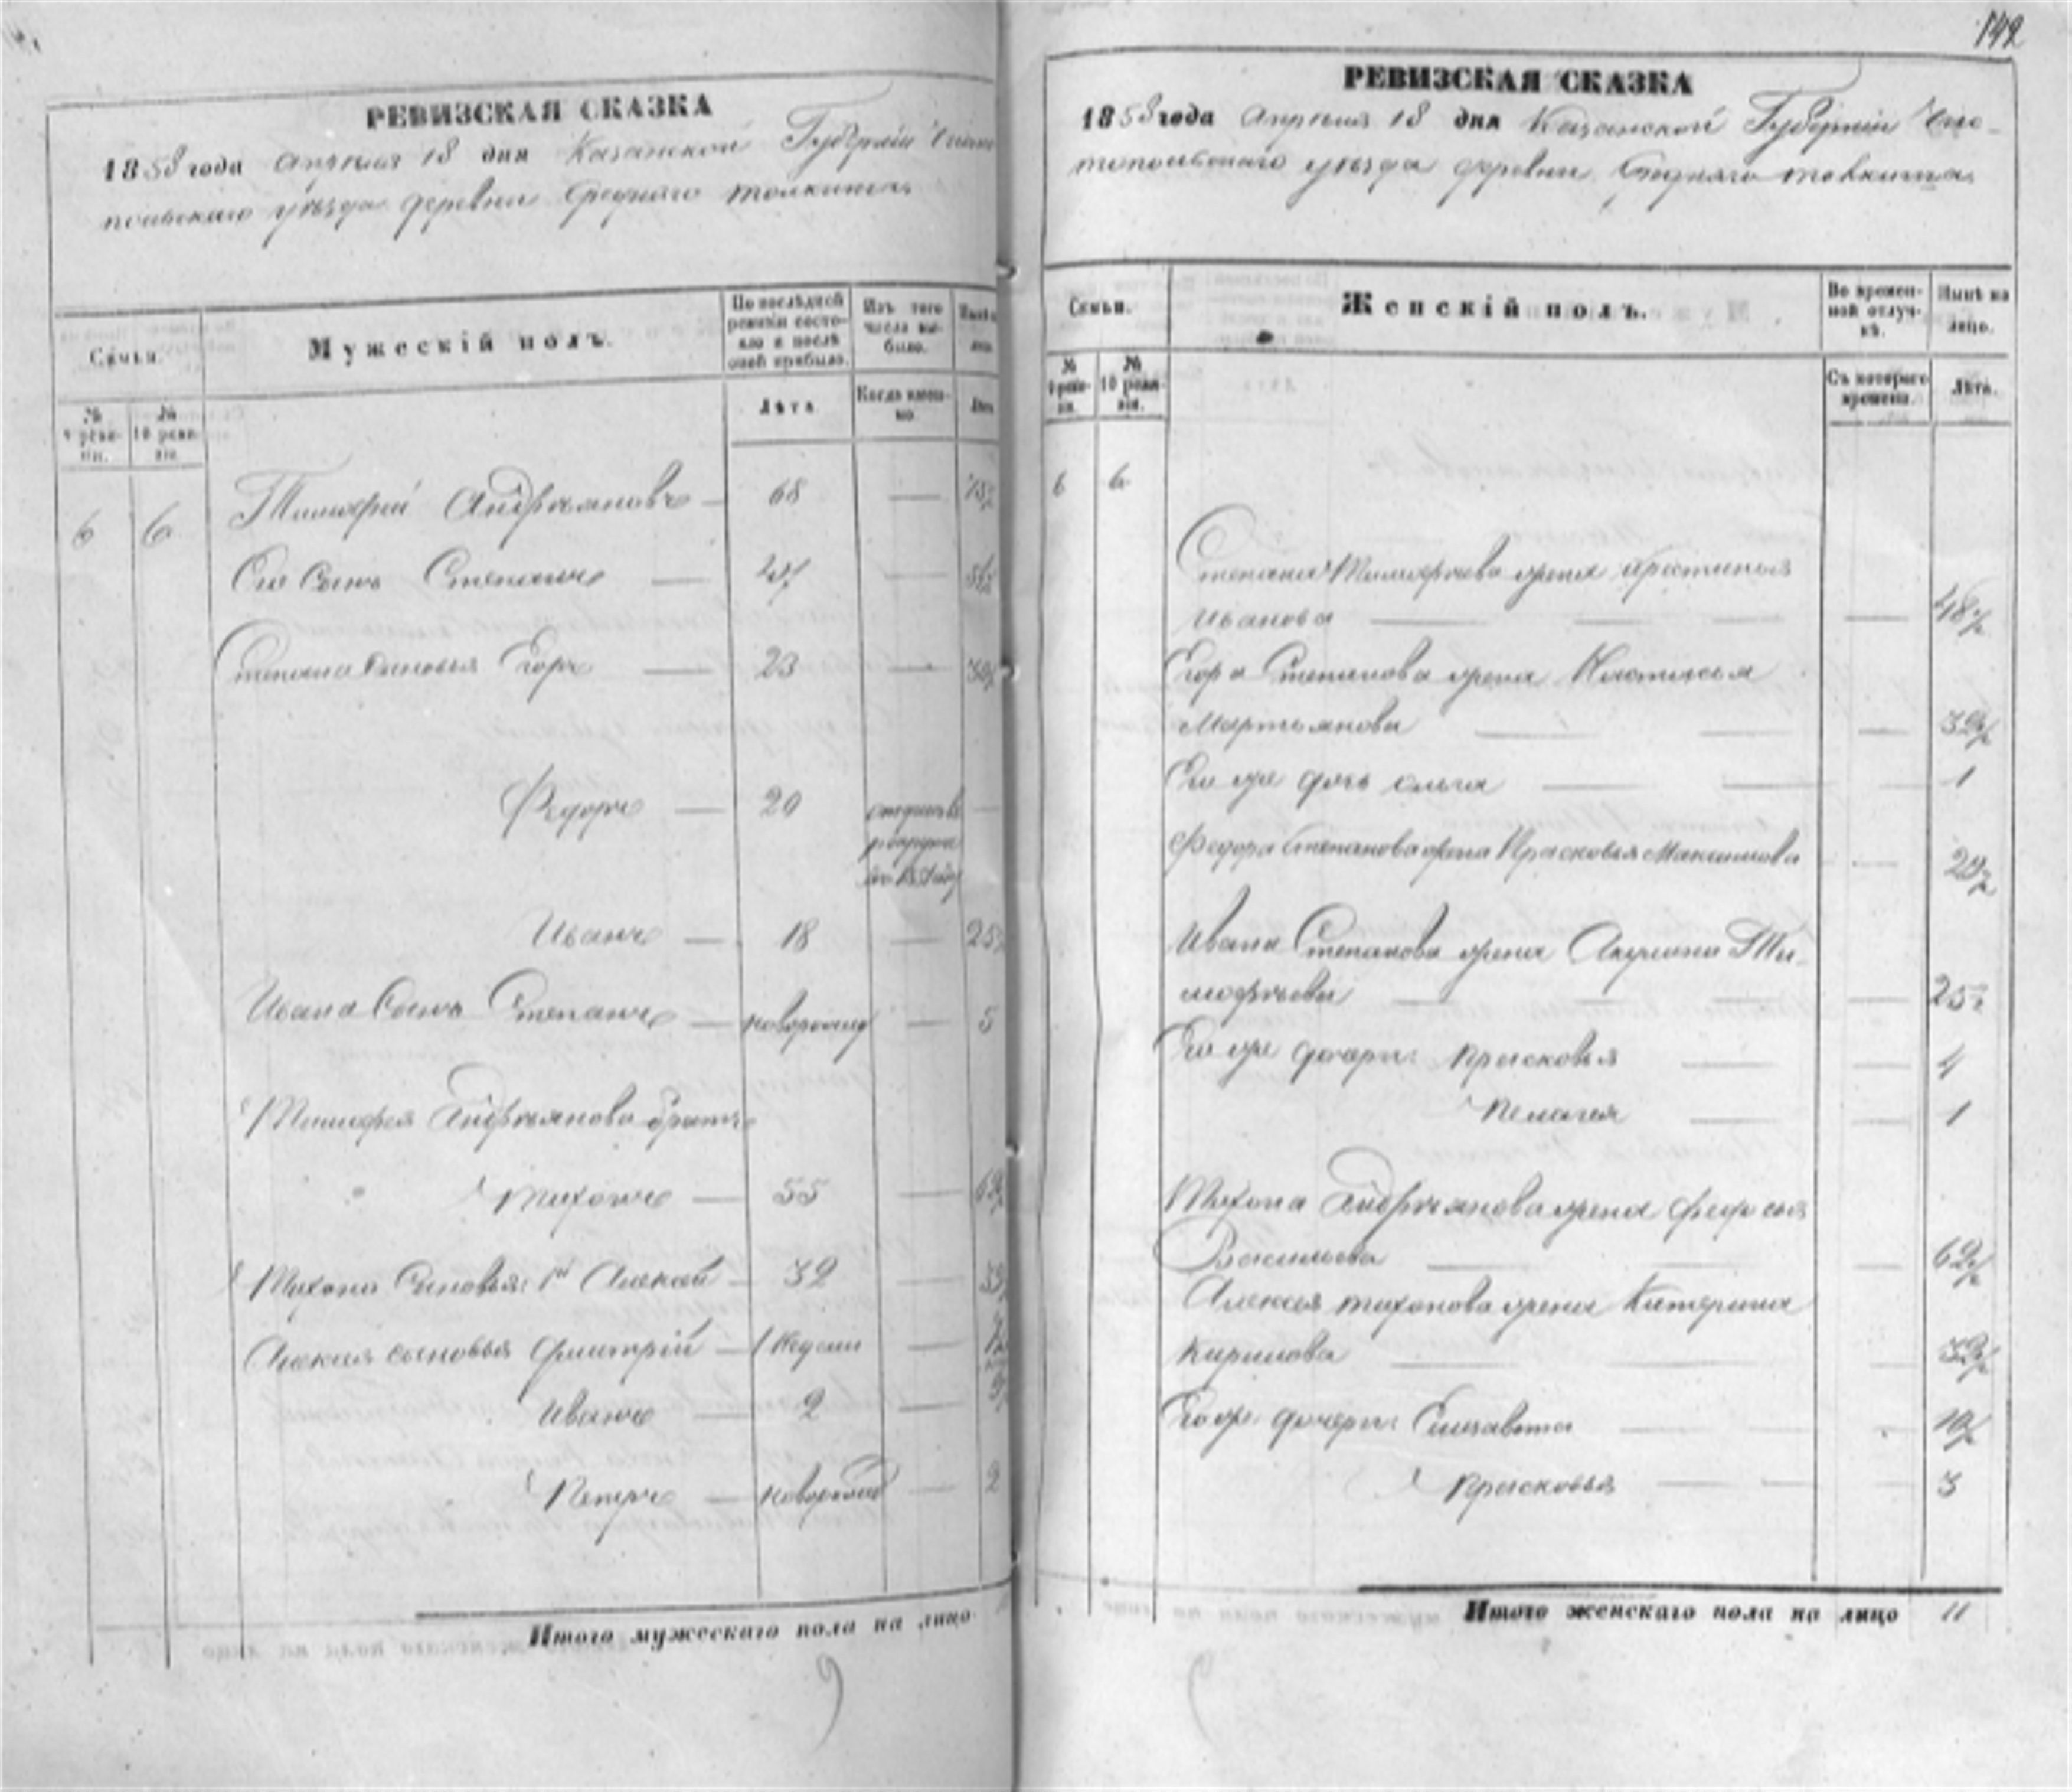 РЕВИЗСКАЯ СКАЗКА
1858 года Апреля 18 дня Казанской Губернiи Чисто
польскаго уѣзда деревни Средняго толкиша
Семьи.
Мужескiй полъ.
По послѣдней ревизiи состояло и послѣ оной прибыло.
Изъ того числа выбыло.
№ 9 ревизiи.
№ 10 ревизiи.
Лѣта
Когда именно
Лѣта
6 6 Тимофей Андреяновъ — 68 —
Его Сынъ Степанъ — 47 —
Степана Сыновья Егоръ — 23 —
Федоръ — 20 —
Иванъ — 18 — 25
Ивана Сынъ Степанъ — новорожд — 5
Тимофея Андреянова братъ
Тихонъ — 55 —
Тихона Сыновья: 1й Алексей — 32 —
Алексея сыновья Дмитрiй — 1 Недели —
Иванъ — 2 —
Петръ — новорожд — 2
Итого мужескаго пола на лицо
142
РЕВИЗСКАЯ СКАЗКА
1858 года Апреля 18 дня Казанской Губернiи Чис-
топольскаго уѣзда деревни Средняго толкиша
Семьи.
Женскiй полъ.
Во временной отлучкѣ.
Нынѣ на лицо.
№ 9 ревизiи.
№ 10 ревизiи.
Съ котораго времени.
Лѣта.
6 6
Степана Тимофеева жена Устинья
Иванова — — — — 48½
Егора Степанова жена Настасья
Мартьянова — — — 32½
Его же дочь Ольга — — — 1
Федора Степанова жена Прасковья Максимова —
Ивана Степанова жена Акулина Ти-
мофеева — — — — 25½
Его же дочери: Прасковья — — 4
Пелагея — — 1
Тихона Андреянова жена Федосья
Васильева — — — 62½
Алексея тихонова жена Катерина
Кирилова — — — 32½
Его же дочери: Елизавета — — 10½
Прасковья — — — 3
Итого женскаго пола на лицо 11